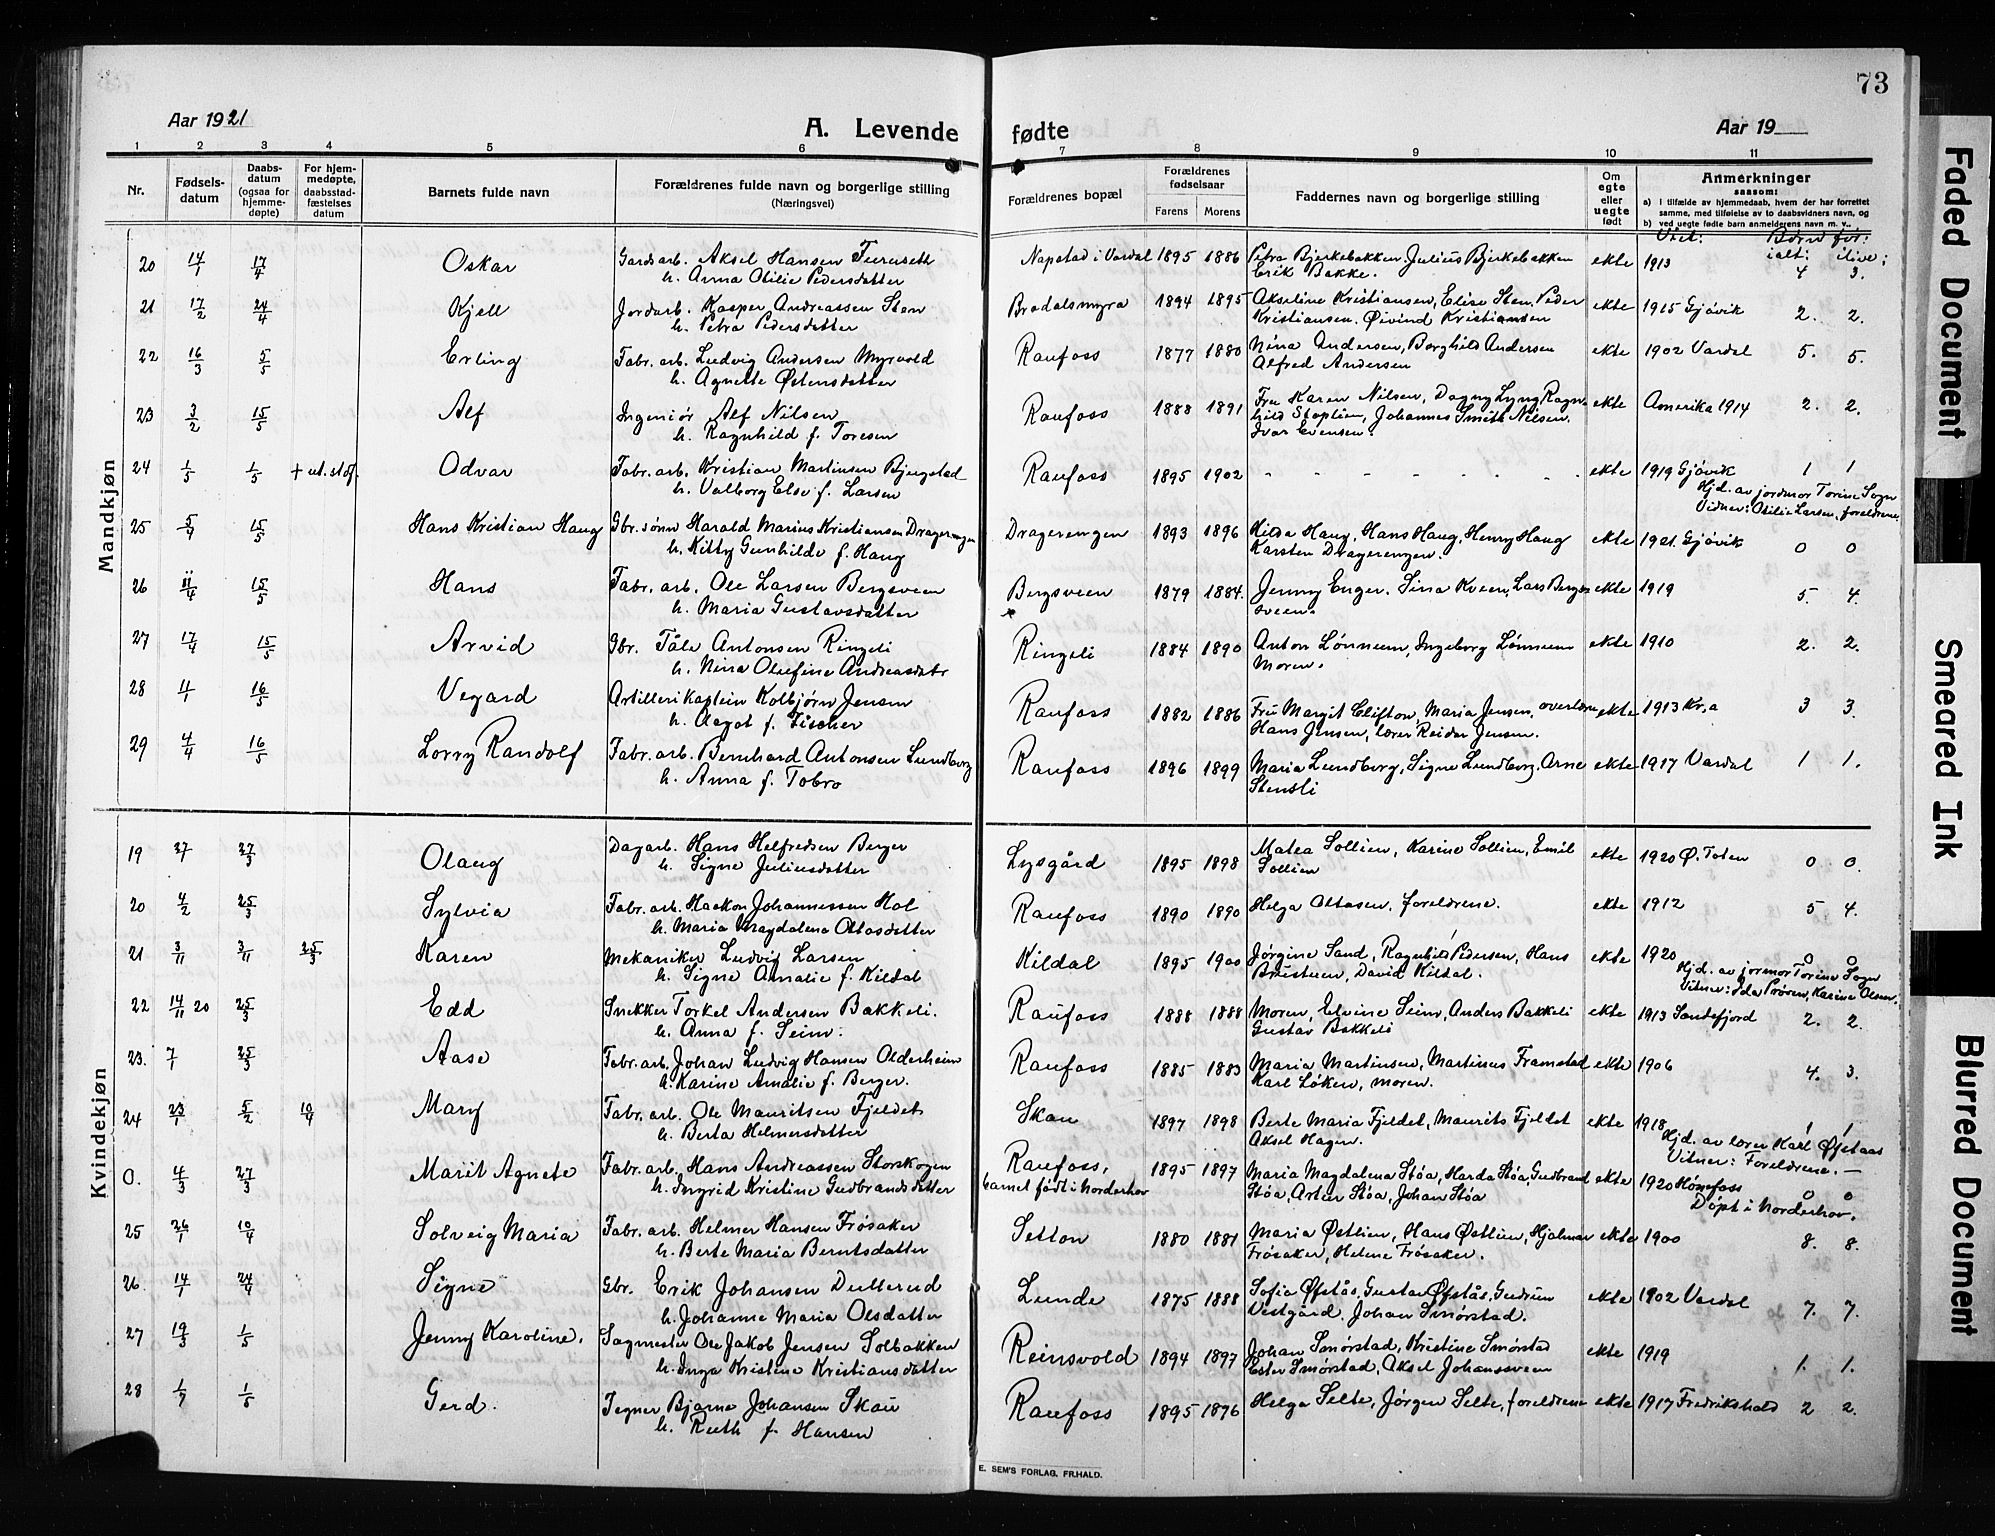 73
Aar 1921 A. Levende fødte Aar 19
1 2 3 4 5 6 7 8 9 10 11
Nr. Fødselsdatum Daabsdatum (ogsaa for hjemmedøpte) For hjemmedøpte, daabsstadfæstelses datum Barnets fulde navn Forældrenes fulde navn og borgerlige stilling (Næringsvei) Forældrenes bopæl Forældrenes fødselsaar Farens Morens Faddernes navn og borgerlige stilling Om egte eller uegte født Anmerkninger saasom: a) I tilfælde av hjemmedaab, hvem der har forrettet samme, med tilføielse av to daabsvidners navn, og b) ved uegte fødte barn anmelderens navn m. v.
Viet: Børn før: ialt: ilive:
Mandkjøn
20 14/1 17/4 Oskar Gardsarb. Aksel Hansen Furuseth Napstad i Vardal 1895 1886 Petra Bjerkebakken, Julius Bjerkebakken ekte 1913 4 3.
h. Anna Otilie Pedersdatter Erik Bakke.
21 17/2 24/4 Kjell Jordarb. Kasper Andreassen Sten Bradalsmyra 1894 1895 Akseline Kristiansen, Elise Sten, Peder ekte 1915 Gjøvik 2. 2.
h. Petra Pedersdatter Kristiansen, Øivind Kristiansen
22 16/3 5/5 Erling Fabr. arb. Ludvig Andersen Myrvold Raufoss 1877 1880 Nina Andersen, Borghild Andersen ekte 1902 Vardal 5. 5.
h. Agnette Østensdatter Alfred Andersen
23 3/2 15/5 Alf Ingeniør Alf Nilsen Raufoss 1888 1891 Fru Karen Nilsen, Dagny Lyng, Ragn- ekte Amerika 1914 2. 2.
h. Ragnhild f. Toresen hild Stoplien, Johannes Smith Nilsen.
Ivar Evensen.
24 1/5 1/5 + ut. st.f. Odvar Fabr. arb. Kristian Martinsen Bjugstad Raufoss 1895 1902 - - - - - - ekte 1919 Gjøvik 1 1
h. Valborg Else f. Larsen Hjd. av jordmor Torine Sogn
Vidner: Otilie Larsen, foreldrene.
25 5/4 15/5 Hans Kristian Haug Gbr. sønn Harald Marius Kristiansen Dragerengen Dragerengen 1893 1896 Hilda Haug, Hans Haug, Henry Haug ekte 1921. Gjøvik 0 0
h. Kitty Gunhilde f. Haug Karsten Dragerengen.
26 11/4 15/5 Hans Fabr. arb. Ole Larsen Bergsveen Bergsveen 1879 1884. Jenny Enger, Sina Kveen, Lars Bergs- ekte 1919 5. 4.
h. Maria Gustavsdatter sveen.
27 17/4 15/5 Arvid Gbr. Tåle Antonsen Ringeli Ringeli 1884 1890 Anton Lønneum, Ingeborg Lønneum ekte 1910 2. 2.
h. Nina Olufine Andreasdatr Moren.
28 4/1 16/5 Vegard Artillerikaptein Kolbjørn Jensen Raufoss 1882 1886 Fru Margit Clifton, Maria Jensen, overlære ekte 1913 Kr.a 3 3.
h. Aagot f. Fischer Hans Jensen, lærer Reidar Jensen.
29 4/4 16/5 Lorry Randolf Fabr. arb. Bernhard Antonsen Lundborg Raufoss 1896 1899 Maria Lundborg, Signe Lundborg, Arne ekte 1917 Vardal 1 1.
h. Anna f. Tobro Stensli
Kvindekjøn
19 27/3 Olaug Dagarb. Hans Helfredsen Berger Lysgård 1895 1898 Matea Sollien, Karine Sollien, Emil ekte 1920 Ø. Toten 0 0.
h. Signe Juliusdatter Sollien
20 4/2 25/3 Sylvia Fabr. arb. Haakon Johannessen Hol Raufoss 1890 1890 Helga Ottosen, foreldrene. ekte 1912 5 4.
h. Maria Magdalena Ottosdatter
21 3/11 3/11 25/3 Karen Mekaniker Ludvig Larsen Kildal 1895 1900 Jørgine Sand, Ragnhild Pedersen, Hans ekte 1920 0 0
h. Signe Amalie f. Kildal Bristuen, David Kildal. Hjd. av jormor Torine Sogn
Vitner: Ida Prøven, Karine Olsen.
22 14/11 20 25/3 Edd Snekker Torkel Andersen Bakkeli. Raufoss 1888 1888 Moren, Elvine Seim, Anders Bakkeli ekte 1913 Sandefjord 2. 2.
h. Anna f. Seim. Gustav Bakkeli
23. 25/3 Aase Fabr. arb. Johan Ludvig Hansen Olderheim Raufoss 1885 1883 Maria Martinsen, Martinus Framstad ekte 1906 4. 3.
h. Karine Amalie f. Berger. Karl Løken, moren.
24 23/1 5/2 10/4 Mary Fabr. arb. Ole Mauritsen Fjeldet Skau 1897 1898 Berte Maria Fjeldet, Maurits Fjeldet ekte 1918 1 1
h. Berta Helmersdatter Aksel Hagen. Hjd. av lærer Karl Øfstaas
Vitner: Foreldrene. —
0. 4/3 27/3 Marit Agnete Fabr. arb. Hans Andreassen Storskogen Raufoss, 1895 1897 Maria Magdalena Støa, Harda Støa, Gudbrand ekte 1920 Hønefoss 0 0
h. Ingrid Kristine Gudbrandsdatter barnet født i Norderhov Støa, Artur Støa, Johan Støa Døpt i Norderhov.
25 26/1 10/4 Solveig Maria Fabr. arb. Helmer Hansen Frøsaker Setton 1880 1881 Maria Østlien, Hans Østlien, Hjalmar ekte 1900 8. 8.
h. Berte Maria Berntsdatter Frøsaker, Helene Frøsaker.
26 14/1 24/4 Signe Gbr. Erik Johansen Dulterud Lunde 1875 1888 Sofia Øfstås, Gustav Øfstås, Gudrun ekte 1902 Vardal 7. 7.
h. Johanne Maria Olsdatter Vestgård, Johan Smørstad.
27 19/3 1/5 Jenny Karoline. Sagmester Ole Jakob Jensen Solbakken Reinsvold 1894 1897 Johan Smørstad, Kristine Smørstad ekte 1919 1. 1.
h. Inga Kristine Kristiansdatter Ester Smørstad, Aksel Johanssveen
28 1/5 Gerd. Tegner Bjarne Johansen Skau Raufoss 1895 1876 Helga Selte, Jørgen Selte, foreldrene ekte 1917 Fredrikshald 2 2.
h. Ruth f. Hansen
E. SEM'S FORLAG, FR.HALD.
Faded Document
Smeared Ink
Blurred Document